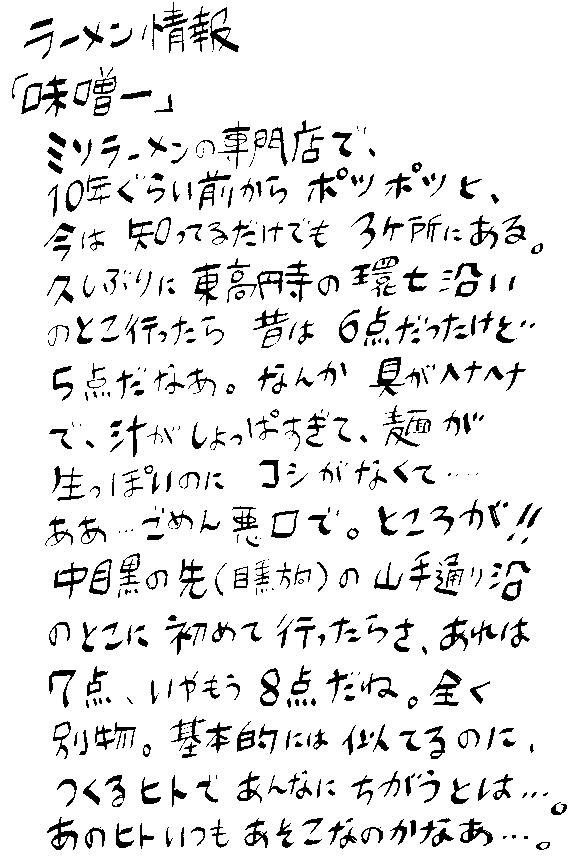 ラーメン情報
「味噌一」
ミソラーメンの専門店で、
10年ぐらい前から ポツポツと、
今は 知ってるだけでも 3ケ所にある。
久しぶりに 東高円寺の 環七 沿い
のとこ行ったら 昔は 6点だったけど‥
5点だなあ。なんか 具がヘナヘナ
で、汁がしょっぱすぎて、麺が
生っぽいのに コシがなくて‥‥
ああ…ごめん悪口で。ところが!!
中目黒の先(目黒方向)の 山手通り沿
のとこに 初めて 行ったらさ、あれは
7点、いやもう 8点だね。全く
別物。基本的には 似てるのに、
つくるヒトで あんなに ちがうとは…。
あのヒトいつも あそこなのかなあ…。